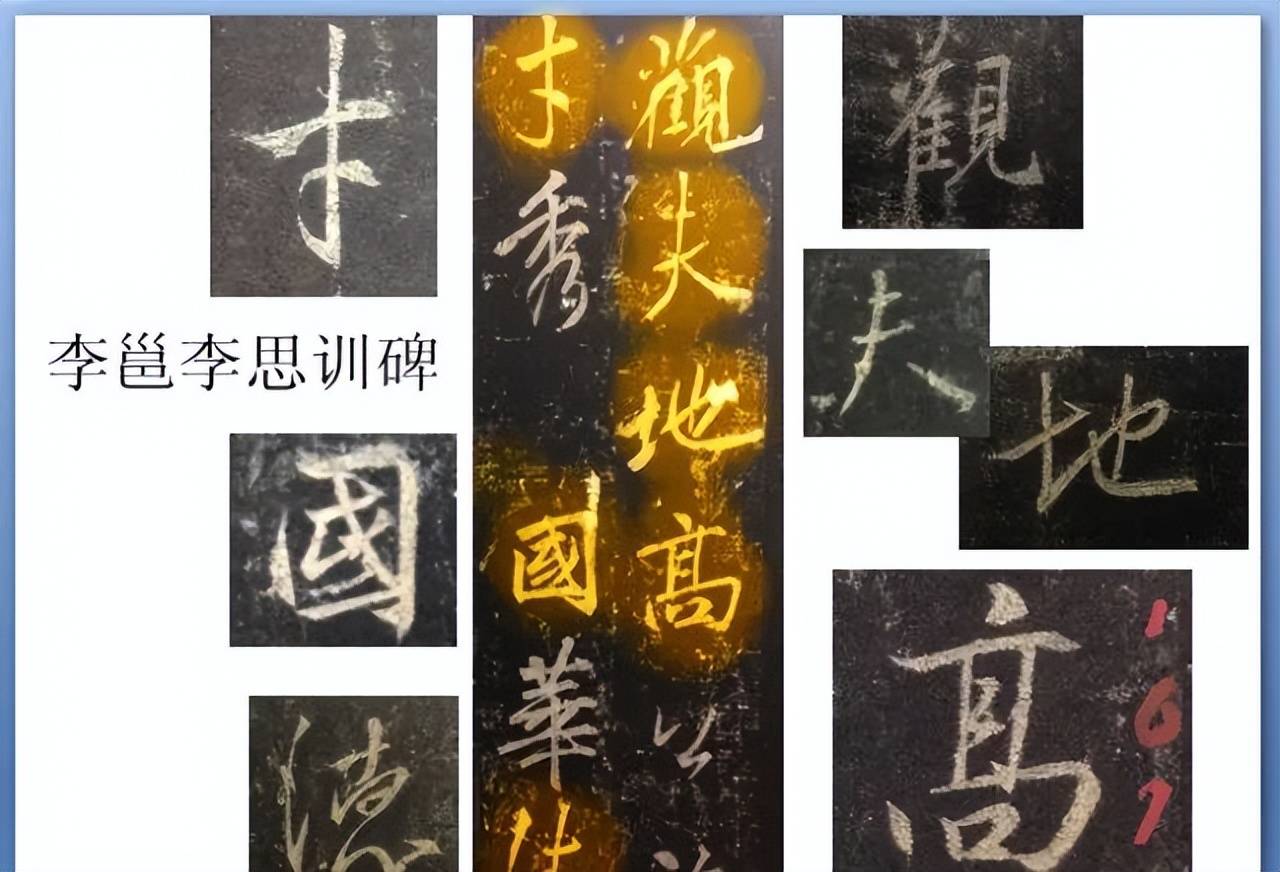 觀夫地高公
才秀國華
才
李邕李思训碑
國
德
觀
夫
地
高